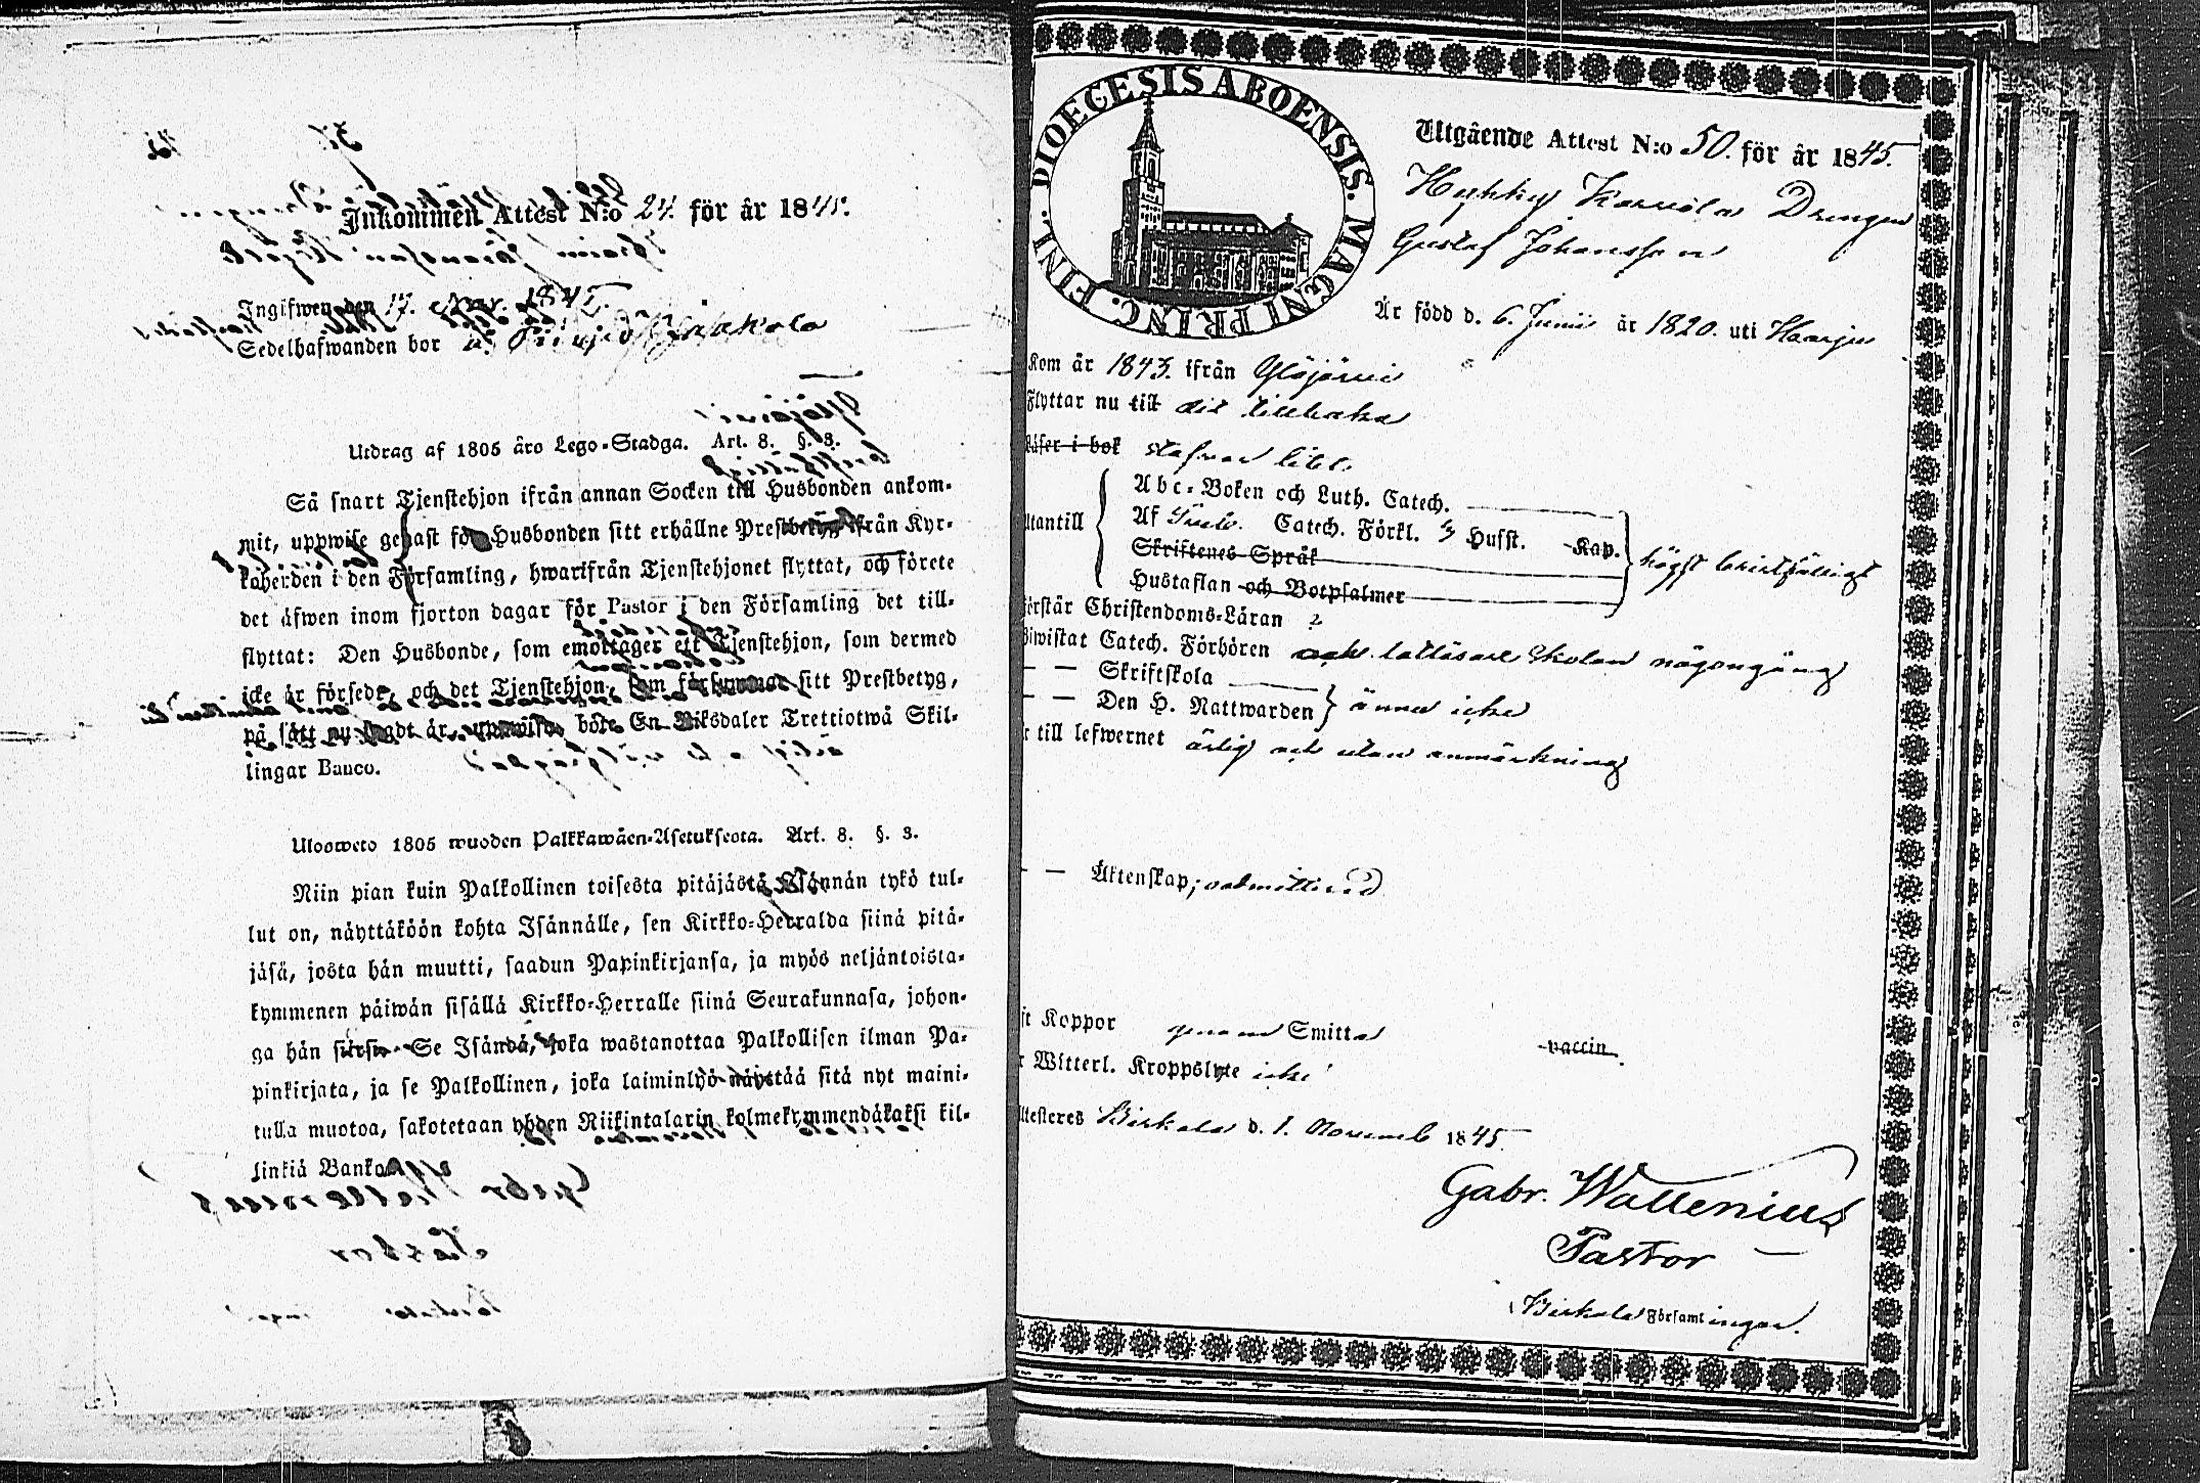 Inkommen Attest N:o 24. för år 1845.
Ingifwen den 17. 1845.
Sedelhafwanden bor
Utdrag af 1805 åro Lego-Stadga. Art. 8. §. 3.
Så snart Tjenstehjon ifrån annan Socken till Husbonden ankom-
mit, uppwise genast för Husbonden sitt erhållne Prestbetyg ifrån Kyr-
koherden i den Församling, hwarifrån Tjenstehjonet flyttat, och förete
det äfwen inom fjorton dagar för Pastor i den Församling det till-
flyttat: Den Husbonde, som emottager ett Tjenstehjon, som dermed
icke är försedt, och det Tjenstehjon, som försummar sitt Prestbetyg,
på sätt nu sagdt är, uppwisa, böte En Riksdaler Trettiotwå Skil-
lingar Banco.
Ulosweto 1805 wuoden Palkkawäen-Asetuksesta. Art. 8. §. 3.
Niin pian kuin Palkollinen toisesta pitäjästä Isännän tykö tul-
lut on, näyttäköön kohta Isännälle, sen Kirkko-Herralda siinä pitä-
jäsä, josta hän muutti, saadun Papinkirjansa, ja myös neljäntoista-
kymmenen päiwän sisällä Kirkko-Herralle siinä Seurakunnasa, johon-
ga hän siirsi. Se Isändä, joka wastanottaa Palkollisen ilman Pa-
pinkirjata, ja se Palkollinen, joka laiminlyö näyttää sitä nyt maini-
tulla muotoa, sakotetaan yhden Riikintalarin kolmekymmendäkaksi kil-
linkiä Bankoa
DIOECESIS ABOENSIS. MAGNI PRINC. FINL.
Utgående Attest N:o 50. för år 1845.
Hyhky Karvola Drengen
Gustaf Johansson
Är född d. 6. Junii år 1820. uti Harju
Kom år 1843. ifrån Ylöjärvi
Flyttar nu till dit tillbaka
Läser i bok stafvar litet
Abc-Boken och Luth. Catech.
Utantill Af Catech. Förkl. Husst. Kap.
Skriftenes Språk högst bristfälligt
Hustaflan och Botpsalmer
Förstår Christendoms-Läran ?
Biwistat Catech. Förhören och lattläsare skolan någongång
— — Skriftskola
— — Den H. Nattwarden ännu icke
till lefwernet ärlig och utan anmärkning
— — Äktenskap; admitterad
Koppor genom Smitta vaccin
Witterl. Kroppslyte icke
Attesteres Birkala d. 1. Novemb 1845.
Gabr. Wallenius
Pastor
i Birkala Församlingar.